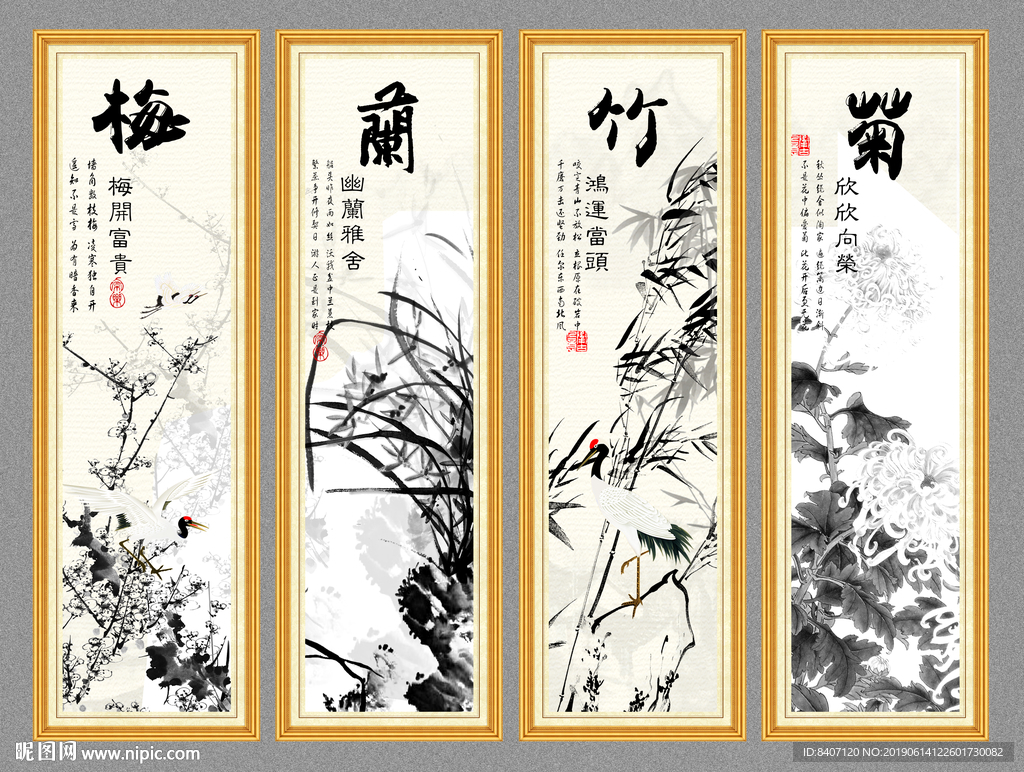 梅
梅開富貴
墙角数枝梅 凌寒独自开
遥知不是雪 为有暗香来
蘭
幽蘭雅舍
竹
鴻運當頭
咬定青山不放松 立根原在破岩中
千磨万击还坚劲 任尔东西南北风
菊
欣欣向榮
秋丛绕舍似陶家 遍绕篱边日渐斜
不是花中偏爱菊 此花开后更无花
昵图网 www.nipic.com
ID:8407120 NO:20190614122601730082